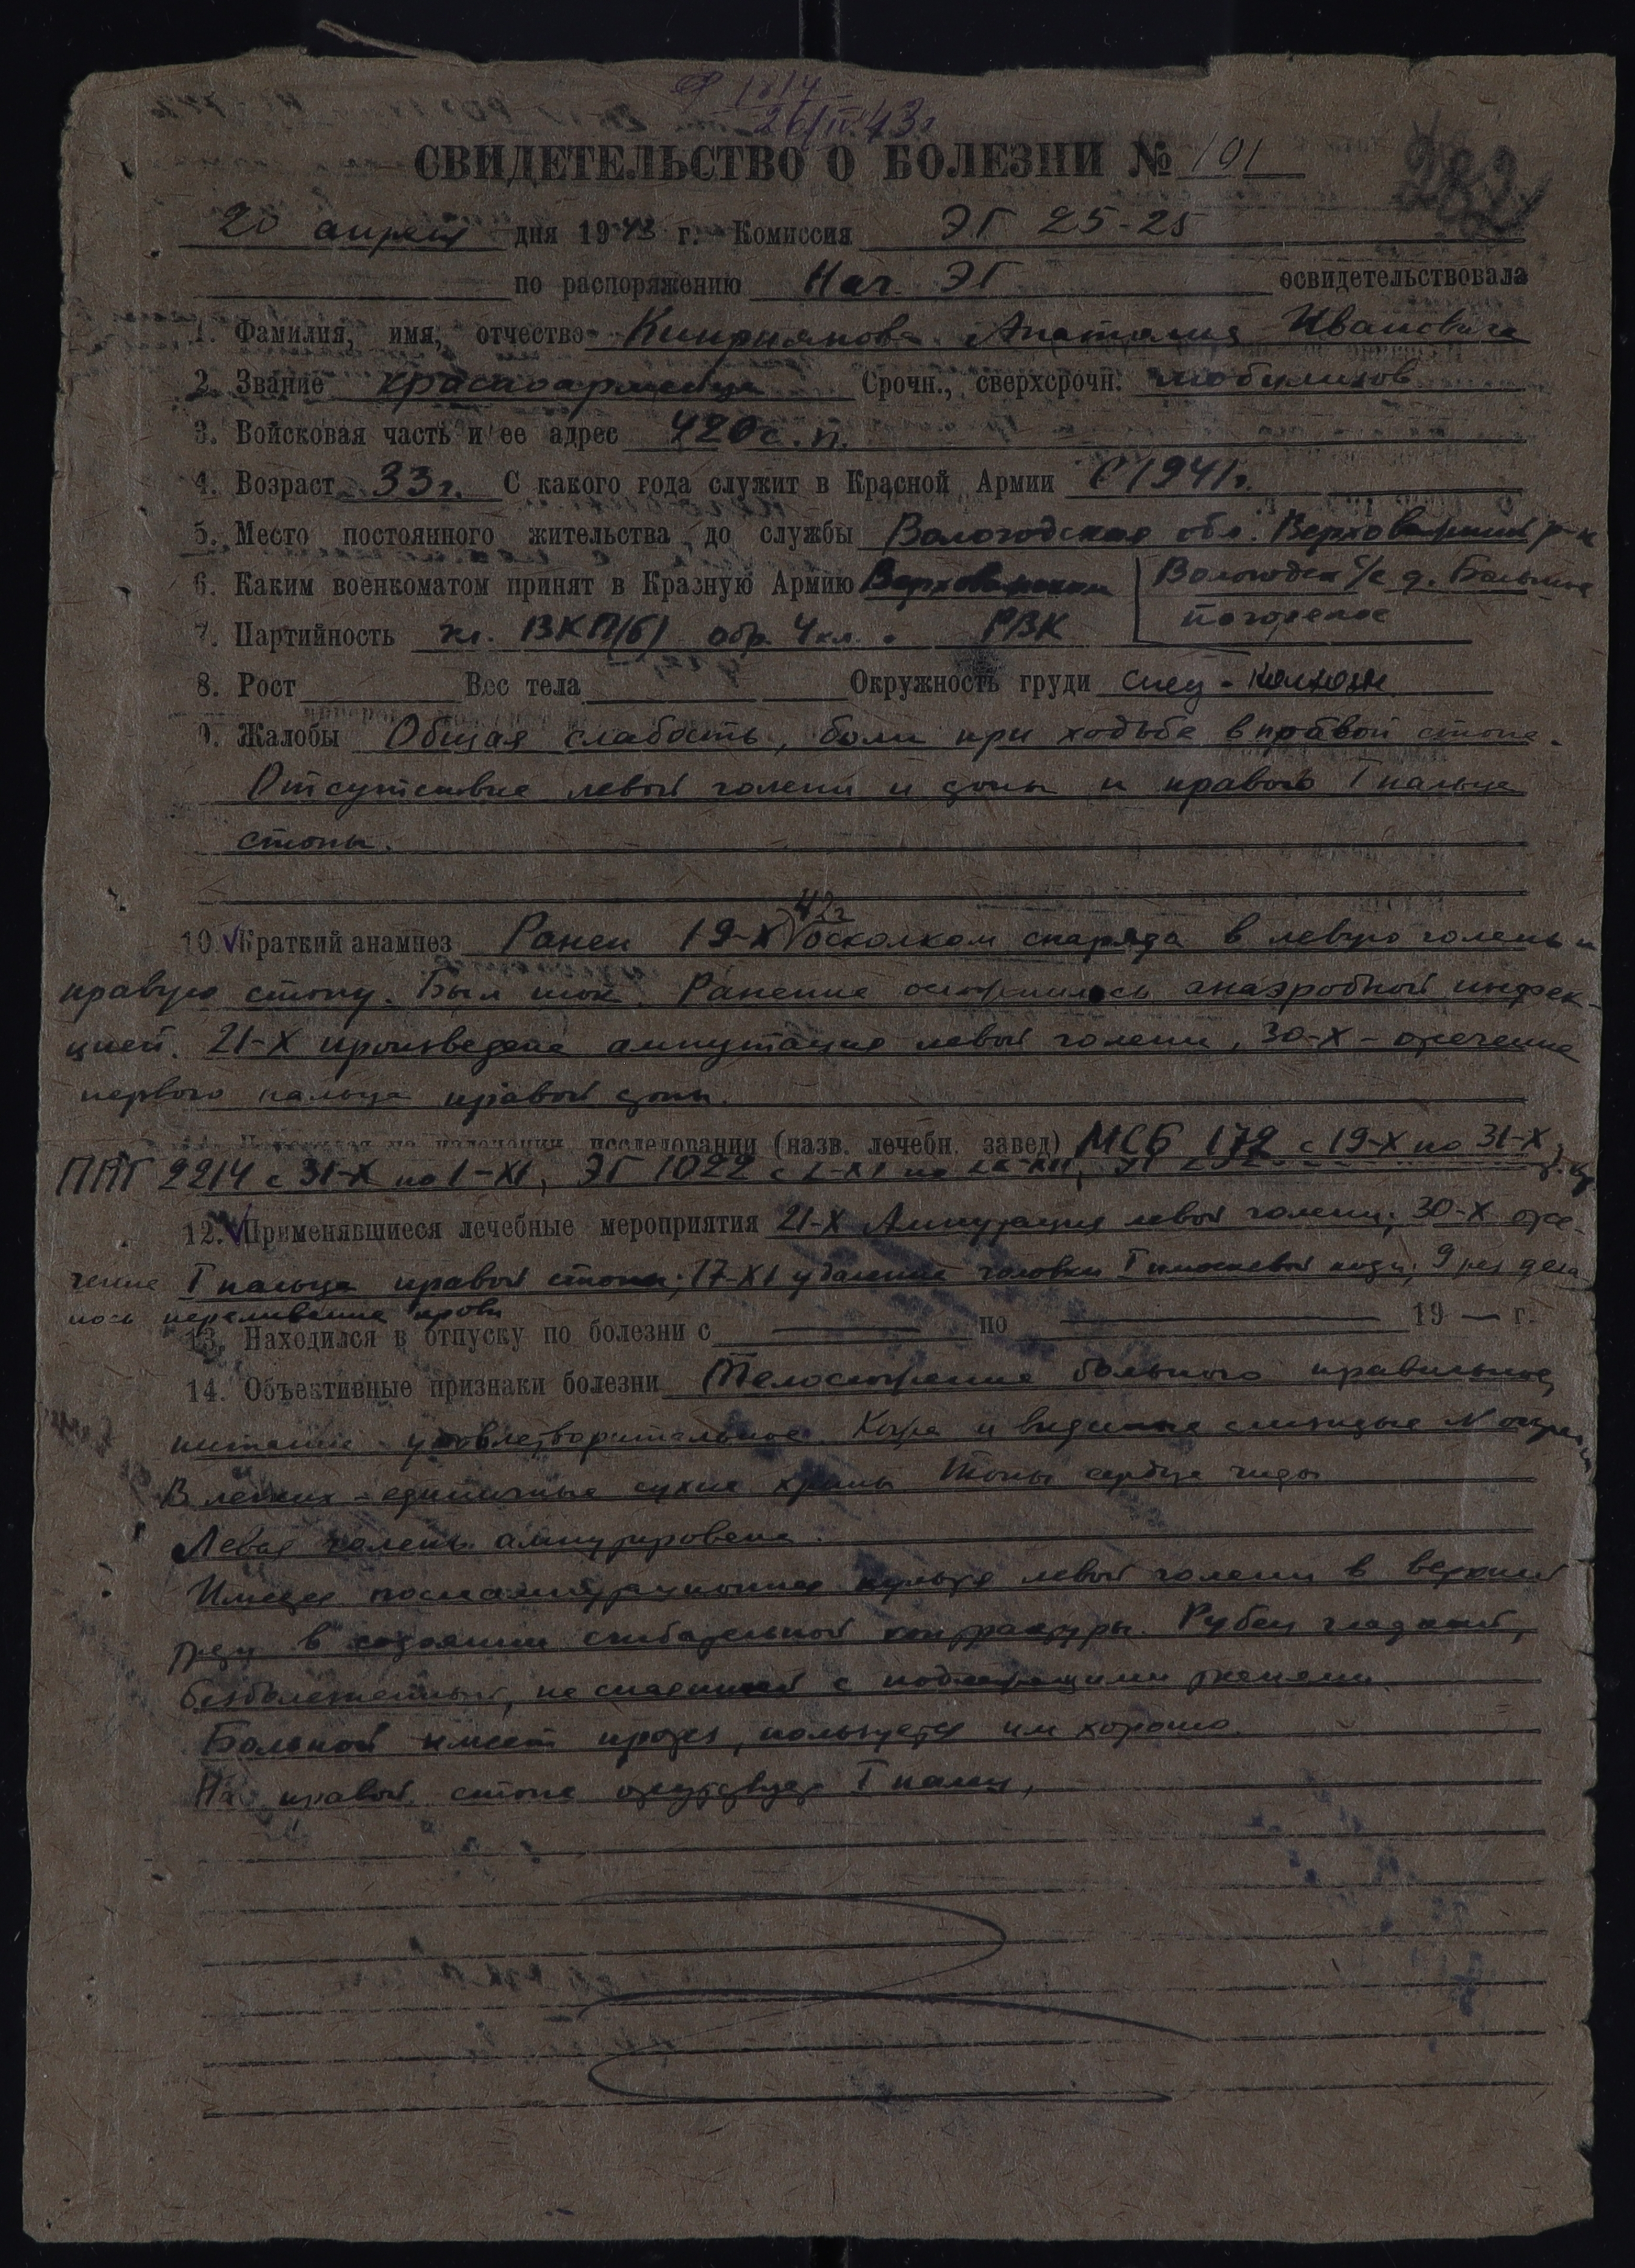 Ф 1814
26/IV.43г
СВИДЕТЕЛЬСТВО О БОЛЕЗНИ № 101
282
20 апреля дня 1943 г. Комиссия ЭГ 25-25
по распоряжению Нач. ЭГ освидетельствовала
1. Фамилия, имя, отчество Киприянова Анатолия Ивановича
2. Звание красноармейца Срочн., сверхсрочн. мобилизов
3. Войсковая часть и ее адрес 420 с.п.
4. Возраст 33 г. С какого года служит в Красной Армии С 1941 г.
5. Место постоянного жительства до службы Вологодская обл. Верховажский р-н
6. Каким военкоматом принят в Красную Армию Верховажским с/с д. Большое
7. Партийность чл. ВКП(б) обр. 4 кл. РВК Погорелое
8. Рост Вес тела Окружность груди
9. Жалобы Общая слабость, боли при ходьбе в правой стопе.
Отсутствие левой голени и стопы и правого I пальца
стопы.
42г
10. Краткий анамнез Ранен 19-X осколком снаряда в левую голень и
правую стопу. Был шок. Ранение осложнилось анаэробной инфек-
цией. 21-X произведена ампутация левой голени, 30-X - отсечение
первого пальца правой стопы.
исследовании (назв. лечебн. завед) МСБ 172 с 19-X по 31-X,
ППГ 2214 с 31-X по 1-XI, ЭГ 1022 с
12. Применявшиеся лечебные мероприятия 21-X Ампутация левой голени; 30-X отсе-
чение I пальца правой стопы; 17-XI удаление головки I плюсневой кости; 9 раз дела
лось переливание крови
13. Находился в отпуску по болезни с — по — 19 — г.
14. Объективные признаки болезни Телосложение больного правильное,
питание удовлетворительное. Кожа и видимые слизистые N
В легких - единичные сухие хрипы Тоны сердца
Левая голень ампутирована.
Имеется послеампутационная культя левой голени в верхней
трети в состоянии сгибательной контрактуры. Рубец гладкий,
безболезненный, не спаянный с подлежащими тканями.
Больной имеет протез, пользуется им хорошо.
На правой стопе отсутствует I палец,